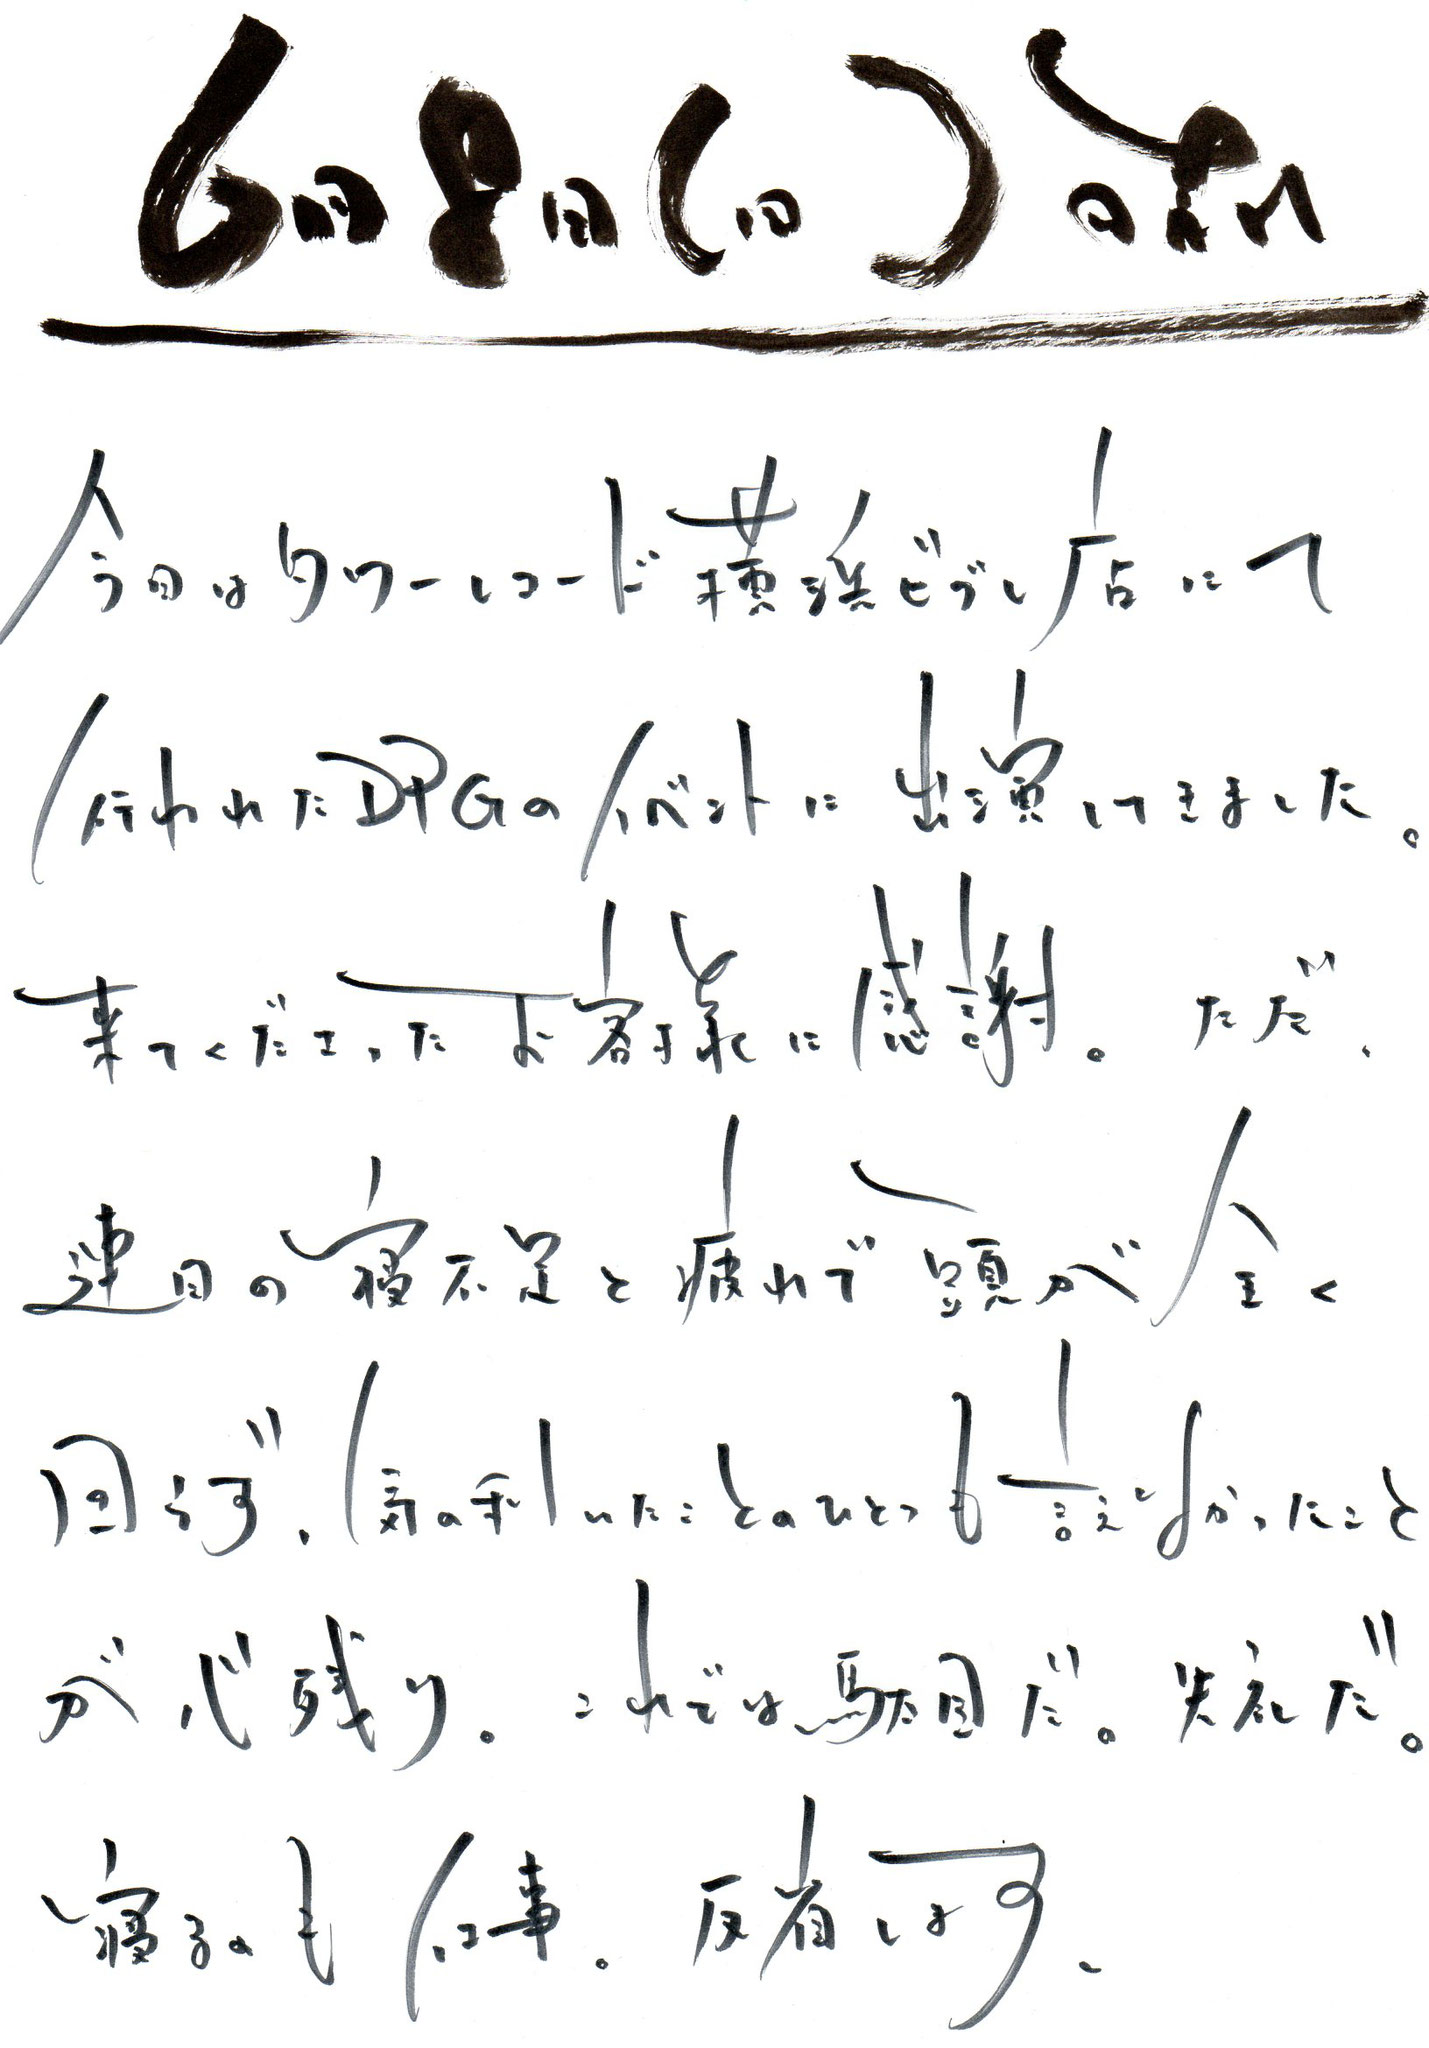 6月8日(日)
今日はタワーレコード横浜ビブレ店にて
行われたDPGのイベントに出演してきました。
来てくださったお客様に感謝。ただ、
連日の寝不足と疲れで頭が全く
回らず、気の利いたことのひとつも言えなかったこと
が心残り。これでは駄目だ。失礼だ。
寝るのも仕事。反省します。